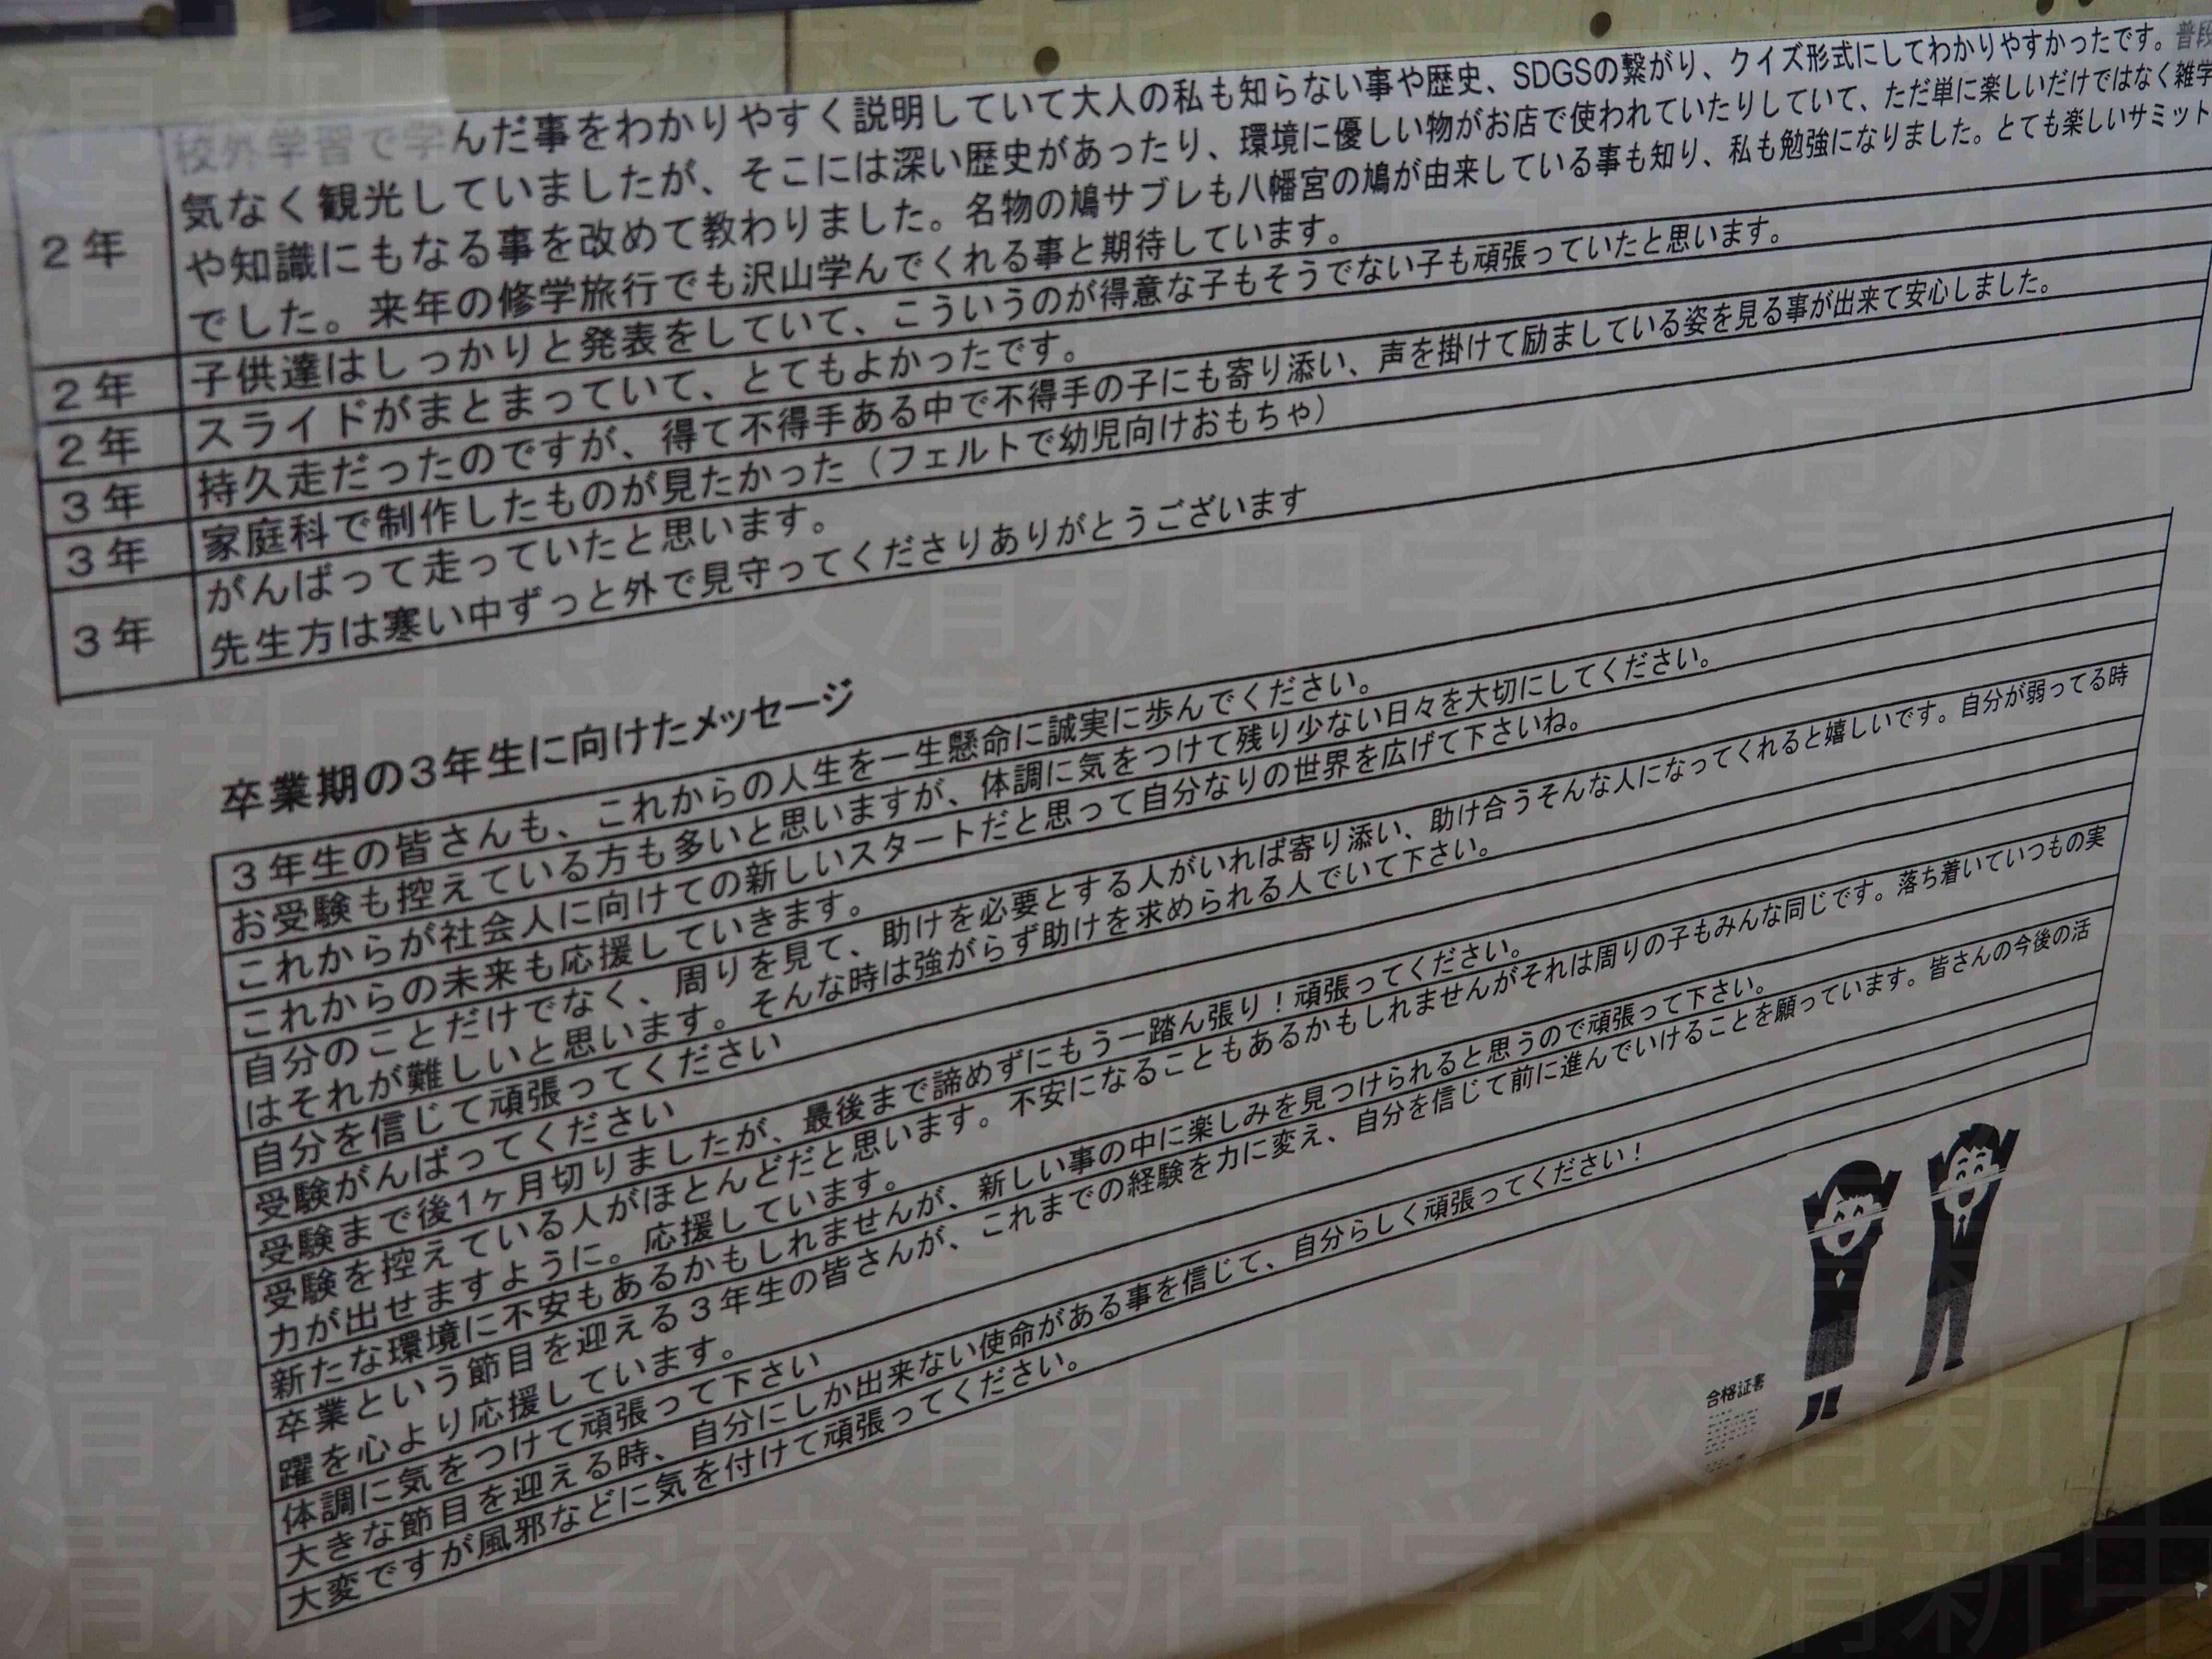 校外学習で学んだ事をわかりやすく説明していて大人の私も知らない事や歴史、SDGSの繋がり、クイズ形式にしてわかりやすかったです。普段
気なく観光していましたが、そこには深い歴史があったり、環境に優しい物がお店で使われていたりしていて、ただ単に楽しいだけではなく雑学
2年
や知識にもなる事を改めて教わりました。名物の鳩サブレも八幡宮の鳩が由来している事も知り、私も勉強になりました。とても楽しいサミット
でした。来年の修学旅行でも沢山学んでくれる事と期待しています。
2年 子供達はしっかりと発表をしていて、こういうのが得意な子もそうでない子も頑張っていたと思います。
2年 スライドがまとまっていて、とてもよかったです。
3年 持久走だったのですが、得て不得手ある中で不得手の子にも寄り添い、声を掛けて励ましている姿を見る事が出来て安心しました。
3年 家庭科で制作したものが見たかった（フェルトで幼児向けおもちゃ）
がんばって走っていたと思います。
3年
先生方は寒い中ずっと外で見守ってくださりありがとうございます
卒業期の3年生に向けたメッセージ
3年生の皆さんも、これからの人生を一生懸命に誠実に歩んでください。
お受験も控えている方も多いと思いますが、体調に気をつけて残り少ない日々を大切にしてください。
これからが社会人に向けての新しいスタートだと思って自分なりの世界を広げて下さいね。
これからの未来も応援していきます。
自分のことだけでなく、周りを見て、助けを必要とする人がいれば寄り添い、助け合うそんな人になってくれると嬉しいです。自分が弱ってる時
はそれが難しいと思います。そんな時は強がらず助けを求められる人でいて下さい。
自分を信じて頑張ってください
受験がんばってください
受験まで後1ヶ月切りましたが、最後まで諦めずにもう一踏ん張り！頑張ってください。
受験を控えている人がほとんどだと思います。不安になることもあるかもしれませんがそれは周りの子もみんな同じです。落ち着いていつもの実
力が出せますように。応援しています。
新たな環境に不安もあるかもしれませんが、新しい事の中に楽しみを見つけられると思うので頑張って下さい。
卒業という節目を迎える3年生の皆さんが、これまでの経験を力に変え、自分を信じて前に進んでいけることを願っています。皆さんの今後の活
躍を心より応援しています。
体調に気をつけて頑張って下さい
大きな節目を迎える時、自分にしか出来ない使命がある事を信じて、自分らしく頑張ってください！
大変ですが風邪などに気を付けて頑張ってください。
合格証書
清新中学校